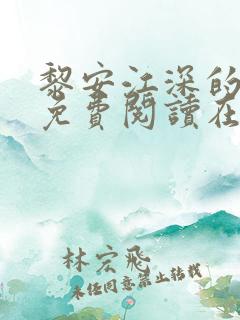 黎安江深的
免費閱讀在
林宏飛
未經同意禁止轉載